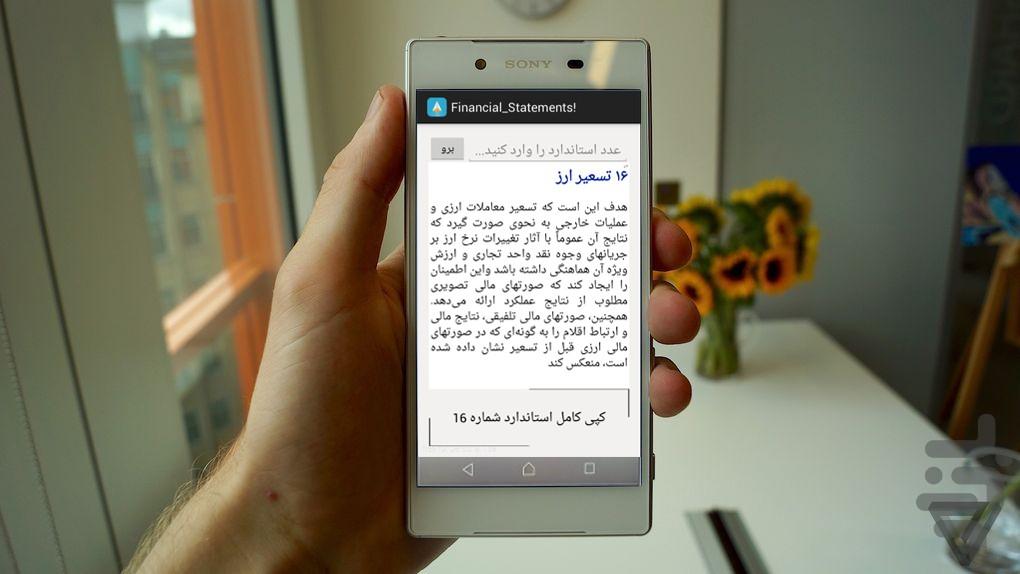 SONY
Financial_Statements!
عدد استاندارد را وارد کنید...
برو
۱۶ تسعیر ارز
هدف این است که تسعیر معاملات ارزی و
عملیات خارجی به نحوی صورت گیرد که
نتایج آن عموماً با آثار تغییرات نرخ ارز بر
جریانهای وجوه نقد واحد تجاری و ارزش
ویژه آن هماهنگی داشته باشد واین اطمینان
را ایجاد کند که صورتهای مالی تصویری
مطلوب از نتایج عملکرد ارائه می‌دهد.
همچنین، صورتهای مالی تلفیقی، نتایج مالی
و ارتباط اقلام را به گونه‌ای که در صورتهای
مالی ارزی قبل از تسعیر نشان داده شده
است، منعکس کند
کپی کامل استاندارد شماره 16